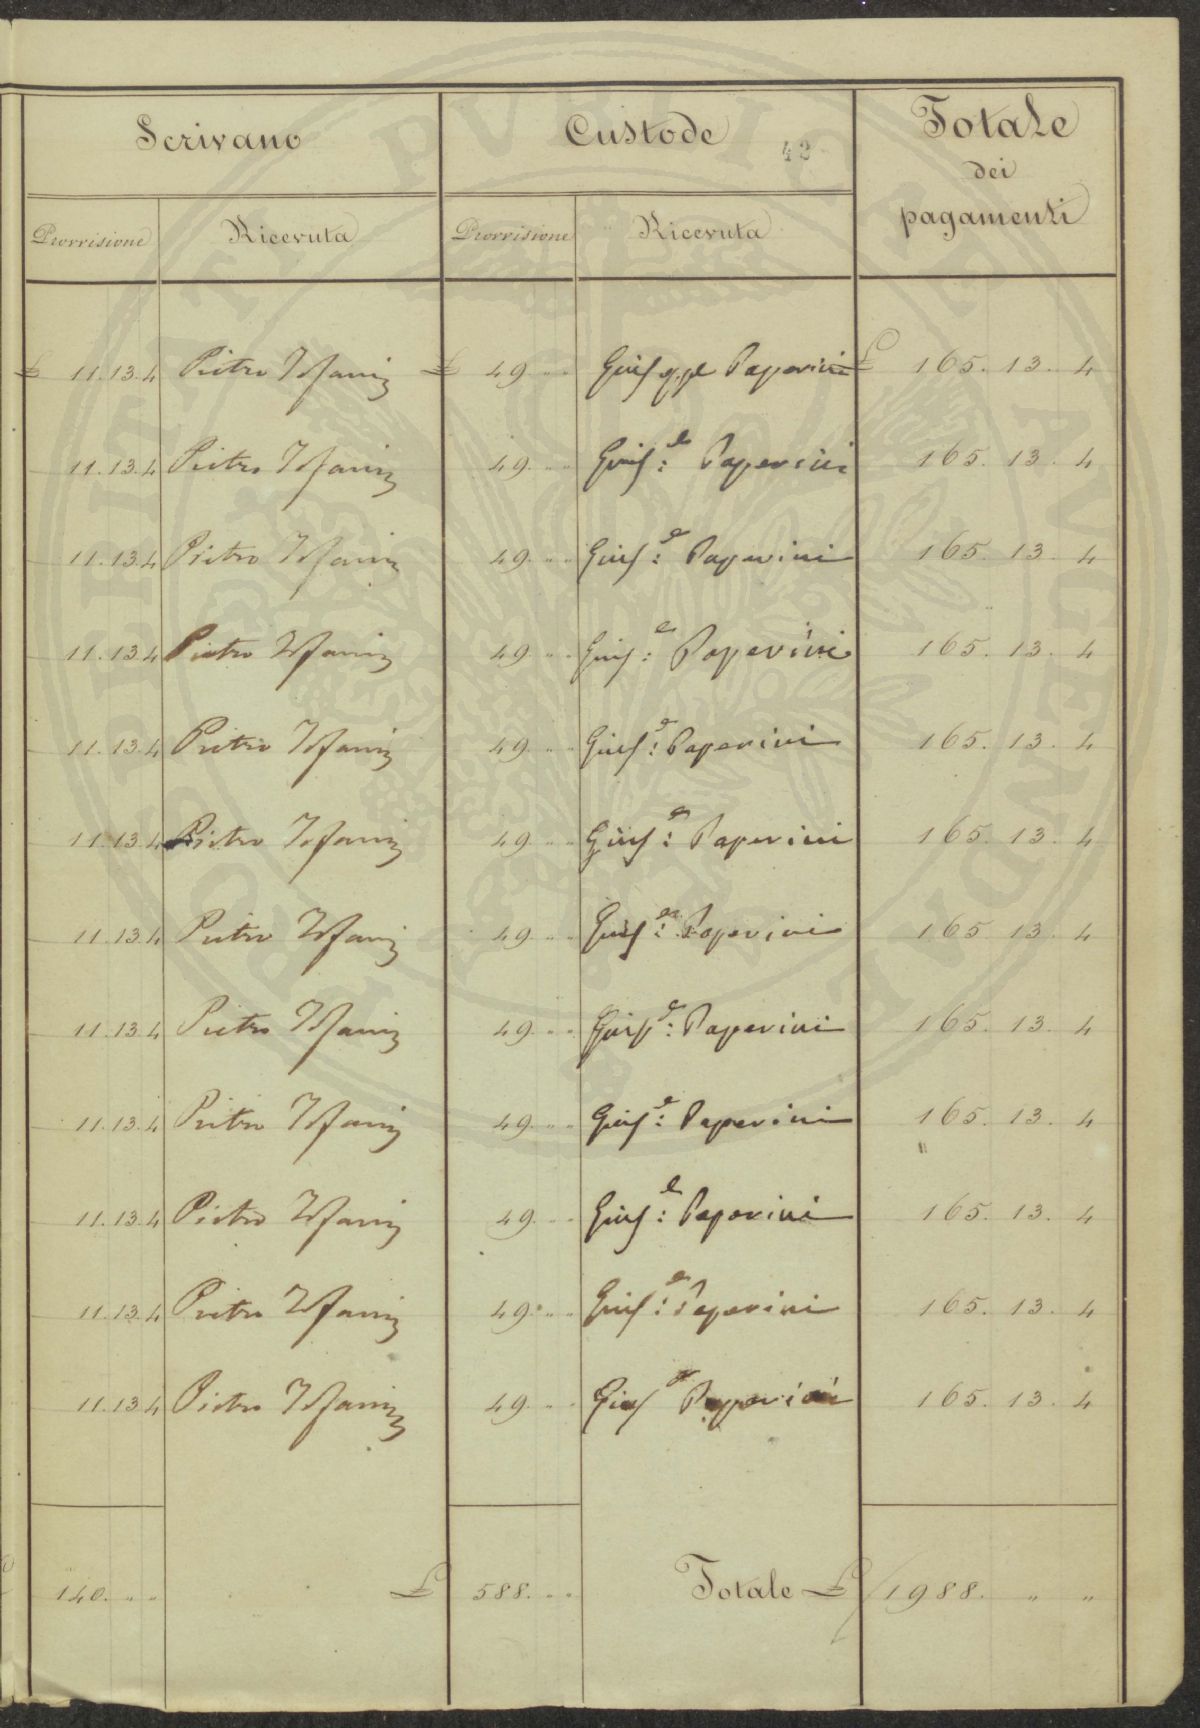 Scrivano Custode 42 Totale
dei
pagamenti
Provvisione Ricevuta Provvisione Ricevuta
£ 11.13.4 Pietro £ 49. " " Giuseppe Paperini £ 165. 13. 4
11.13.4 Pietro 49. " " Gius:e Paperini 165. 13. 4
11.13.4 Pietro 49. " " Gius:e Paperini 165. 13. 4
11.13.4 Pietro 49. " " Gius:e Paperini 165. 13. 4
11.13.4 Pietro 49. " " Gius:e Paperini 165. 13. 4
11.13.4 Pietro 49. " " Gius:e Paperini 165. 13. 4
11.13.4 Pietro 49. " " Gius:e Paperini 165. 13. 4
11.13.4 Pietro 49. " " Gius:e Paperini 165. 13. 4
11.13.4 Pietro 49. " " Gius:e Paperini 165. 13. 4
11.13.4 Pietro 49. " " Gius:e Paperini 165. 13. 4
11.13.4 Pietro 49. " " Gius:e Paperini 165. 13. 4
11.13.4 Pietro 49. " " Gius e Paperini 165. 13. 4
140. " " £ 588. " " Totale £ 1988. " "